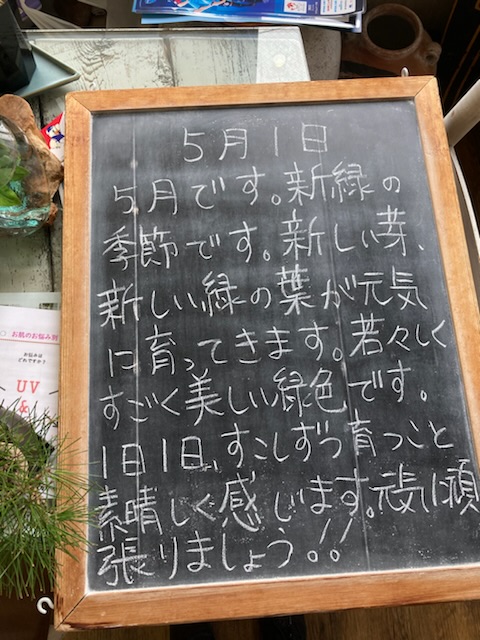 5月1日
5月です。新緑の
季節です。新しい芽、
新しい緑の葉が元気
に育ってきます。若々しく
すごく美しい緑色です。
1日1日、すこしずつ育つこと
素晴しく感じます。元気に頑
張りましょう!!
お肌のお悩み別
お悩みは
どれですか?
UV
&